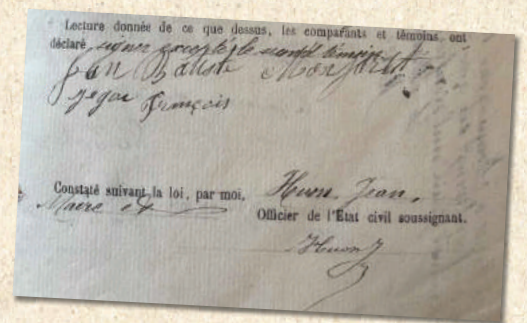 Lecture donnée de ce que dessus, les comparants et témoins ont
déclaré signer excepté le second témoin
Jan Batiste
Jegou François
Constaté suivant la loi, par moi, Huon, Jean,
Maire
Officier de l'État civil soussignant.
Huon J